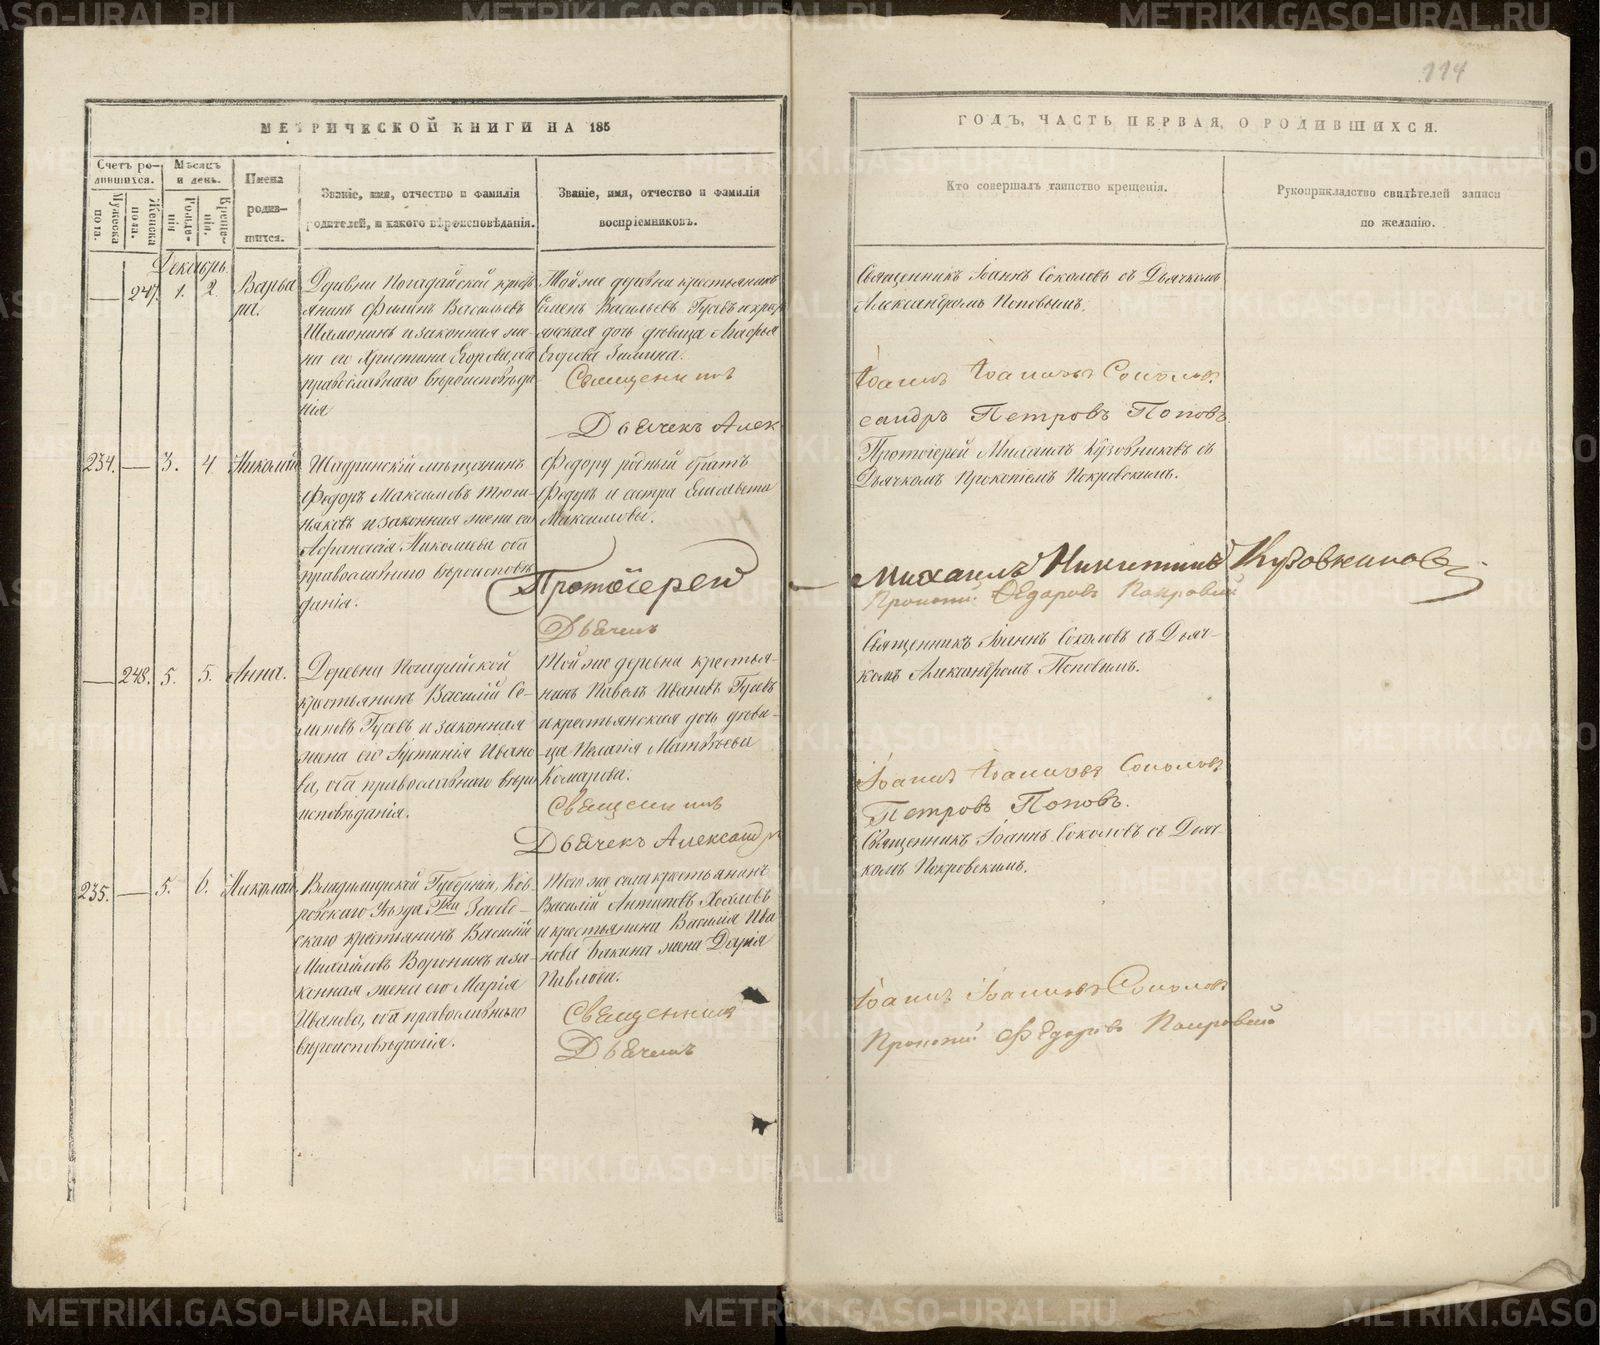 114
МЕТРИЧЕСКОЙ КНИГИ НА 185
ГОДЪ, ЧАСТЬ ПЕРВАЯ, О РОДИВШИХСЯ.
Счетъ ро-
дившихся.
Мѣсяцъ
и день.
Имена
родив-
шихся.
Званіе, имя, отчество и фамилія
родителей, и какого вѣроисповѣданія.
Званіе, имя, отчество и фамилія
воспріемниковъ.
Кто совершалъ таинство крещенія.
Рукоприкладство свидѣтелей записи
по желанію.
Мужеска
пола.
Женска
пола.
Рожде-
нія
Креще-
нія.
Декабрь.
— 247. 1. 2. Варва
ра.
Деревни Погадайской кресть
янинъ Филипъ Васильевъ
Шамонинъ и законная же-
на его Христина Егорова, оба
православнаго вѣроисповѣда
нія
Той же деревни крестьянинъ
Семенъ Васильевъ Гусевъ и кресть
янская дочь дѣвица Агафья
Егорова Зимина.
Священникъ
Дьячекъ Алек
Священникъ Іоаннъ Соколовъ съ Дьячкомъ
Александромъ Поповымъ.
Іоаннъ Іоанновъ Соколовъ
сандръ Петровъ Поповъ
234. — 3. 4. Николай
Шадринскій мѣщанинъ
Федоръ Максимовъ
и законная жена его
Николаева оба
православнаго вѣроисповѣ
данія.
Федору родный братъ
Федоръ и сестра Елисавета
Максимовы.
Протоіерей
Дьячекъ
Протоіерей Михаилъ Кузовниковъ съ
Дьячкомъ Прокопіемъ Покровскимъ.
Михаилъ Никитинъ Кузовниковъ
Прокопій Федоровъ Покровскій
— 248. 5. 5. Анна.
Деревни Погадайской
крестьянинъ Василій Се-
меновъ Гусевъ и законная
жена его Іустинія Ивано
ва, оба православнаго вѣро
исповѣданія.
Той же деревни крестья-
нинъ Павелъ Ивановъ Гусевъ
и крестьянская дочь дѣви-
ца Пелагія Матвѣева
Комарова.
Священникъ
Дьячекъ Александръ
Священникъ Іоаннъ Соколовъ съ Дьяч-
комъ Александромъ Поповымъ.
Іоаннъ Іоанновъ Соколовъ
Петровъ Поповъ.
235. — 5. 6. Николай
Владимирской Губерніи, Ков-
ровскаго Уѣзда
скаго крестьянинъ Василій
Михайловъ Воронинъ и за-
конная жена его Марія
Иванова, оба православнаго
вѣроисповѣданія.
Того же села крестьянинъ
Василій Антиповъ Хохловъ
и крестьянина Василія Ива
нова Бакина жена Дарія
Павлова.
Священникъ
Дьячекъ
Священникъ Іоаннъ Соколовъ съ Дьяч-
комъ Покровскимъ.
Іоаннъ Іоанновъ Соколовъ
Прокопій Федоровъ Покровскій
METRIKI.GASO-URAL.RU